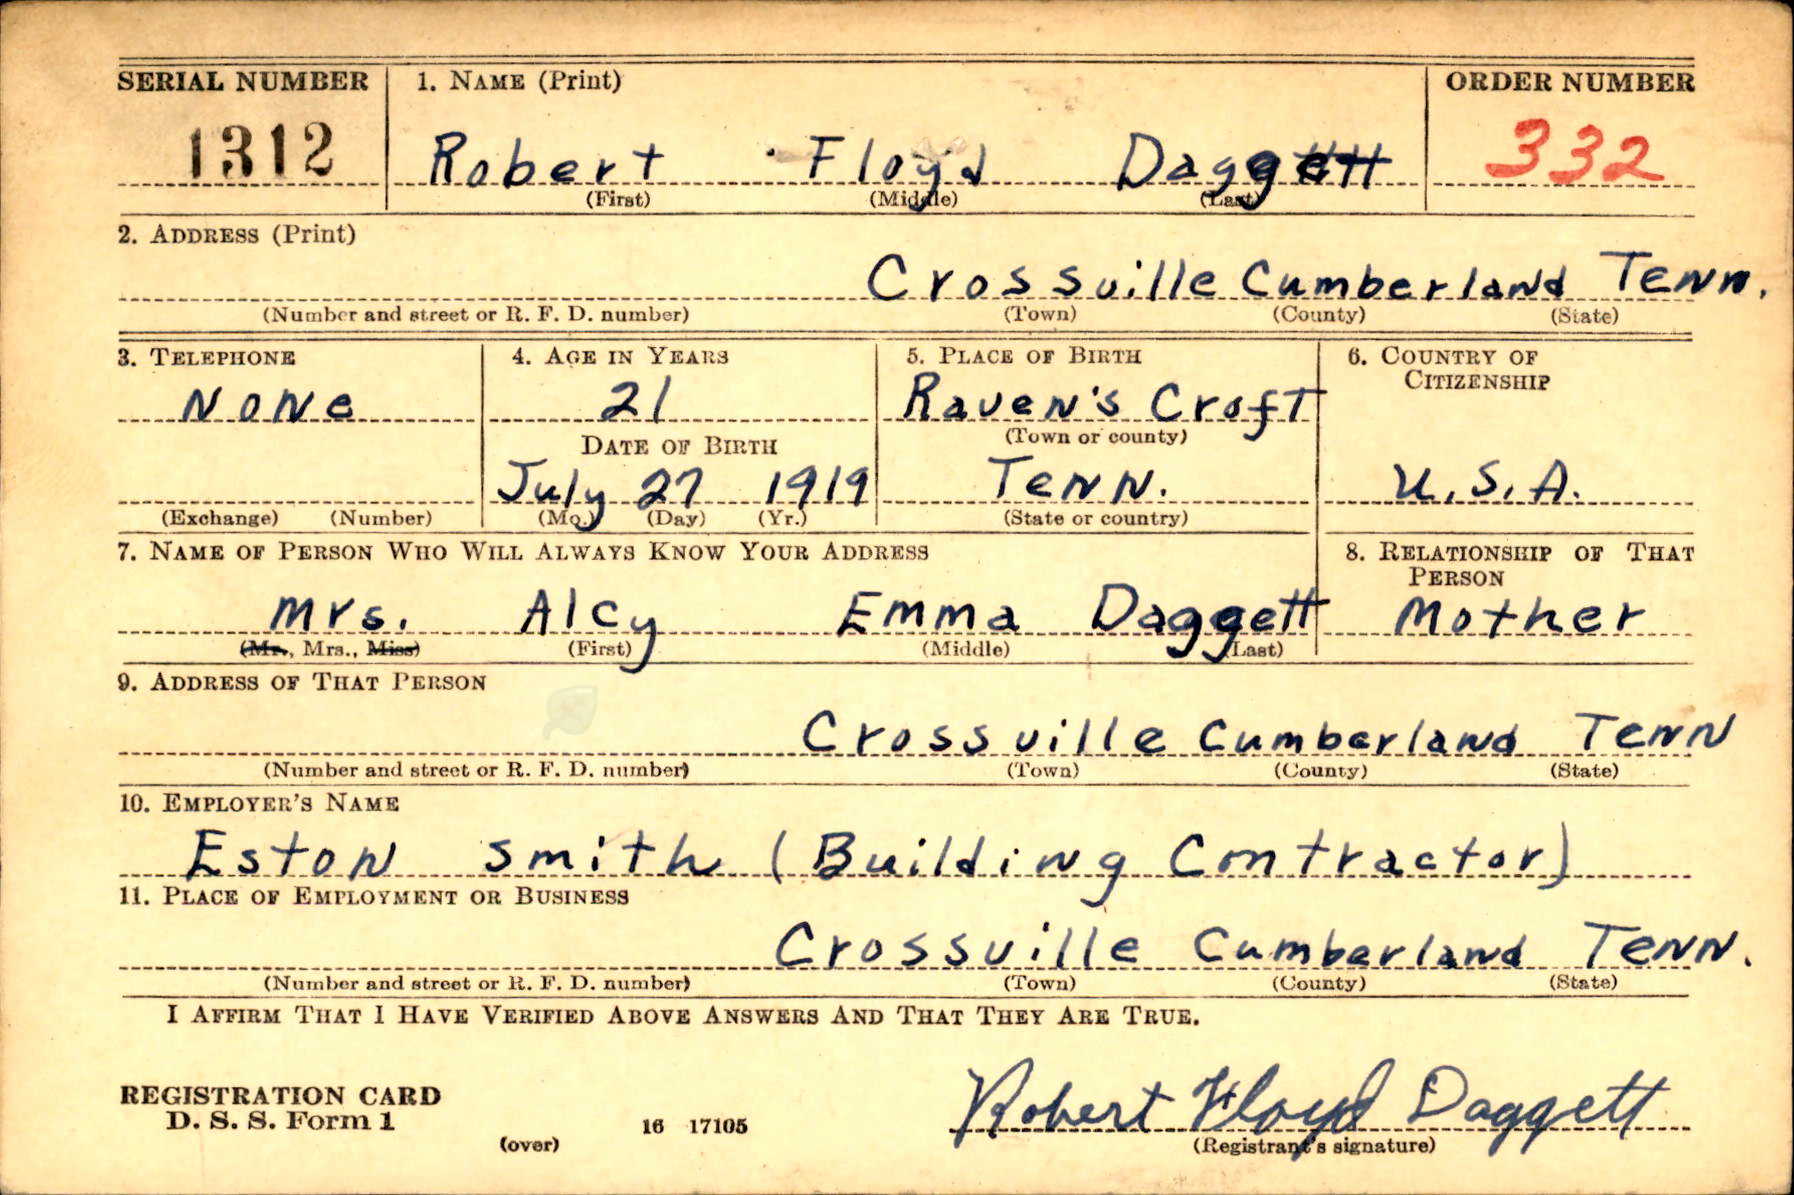 SERIAL NUMBER 1. NAME (Print) ORDER NUMBER
1312 Robert Floyd Daggett 332
(First) (Middle) (Last)
2. ADDRESS (Print)
Crossville Cumberland Tenn.
(Number and street or R. F. D. number) (Town) (County) (State)
3. TELEPHONE 4. AGE IN YEARS 5. PLACE OF BIRTH 6. COUNTRY OF
CITIZENSHIP
None 21 Raven's Croft
DATE OF BIRTH (Town or county)
July 27 1919 Tenn. U.S.A.
(Exchange) (Number) (Mo.) (Day) (Yr.) (State or country)
7. NAME OF PERSON WHO WILL ALWAYS KNOW YOUR ADDRESS 8. RELATIONSHIP OF THAT
PERSON
Mrs. Alcy Emma Daggett Mother
(Mr., Mrs., Miss) (First) (Middle) (Last)
9. ADDRESS OF THAT PERSON
Crossville Cumberland Tenn
(Number and street or R. F. D. number) (Town) (County) (State)
10. EMPLOYER'S NAME
Eston Smith (Building Contractor)
11. PLACE OF EMPLOYMENT OR BUSINESS
Crossville Cumberland Tenn.
(Number and street or R. F. D. number) (Town) (County) (State)
I AFFIRM THAT I HAVE VERIFIED ABOVE ANSWERS AND THAT THEY ARE TRUE.
REGISTRATION CARD
D. S. S. Form 1 16 17105 Robert Floyd Daggett
(over) (Registrant's signature)